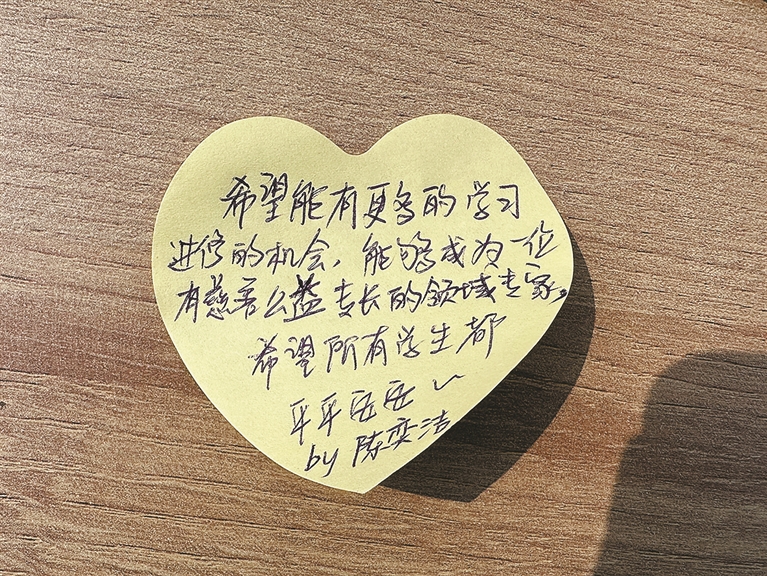 希望能有更多的学习
进修的机会，能够成为一位
有慈善公益专长的领域专家。
希望所有学生都
平平安安～
by 陈奕洁